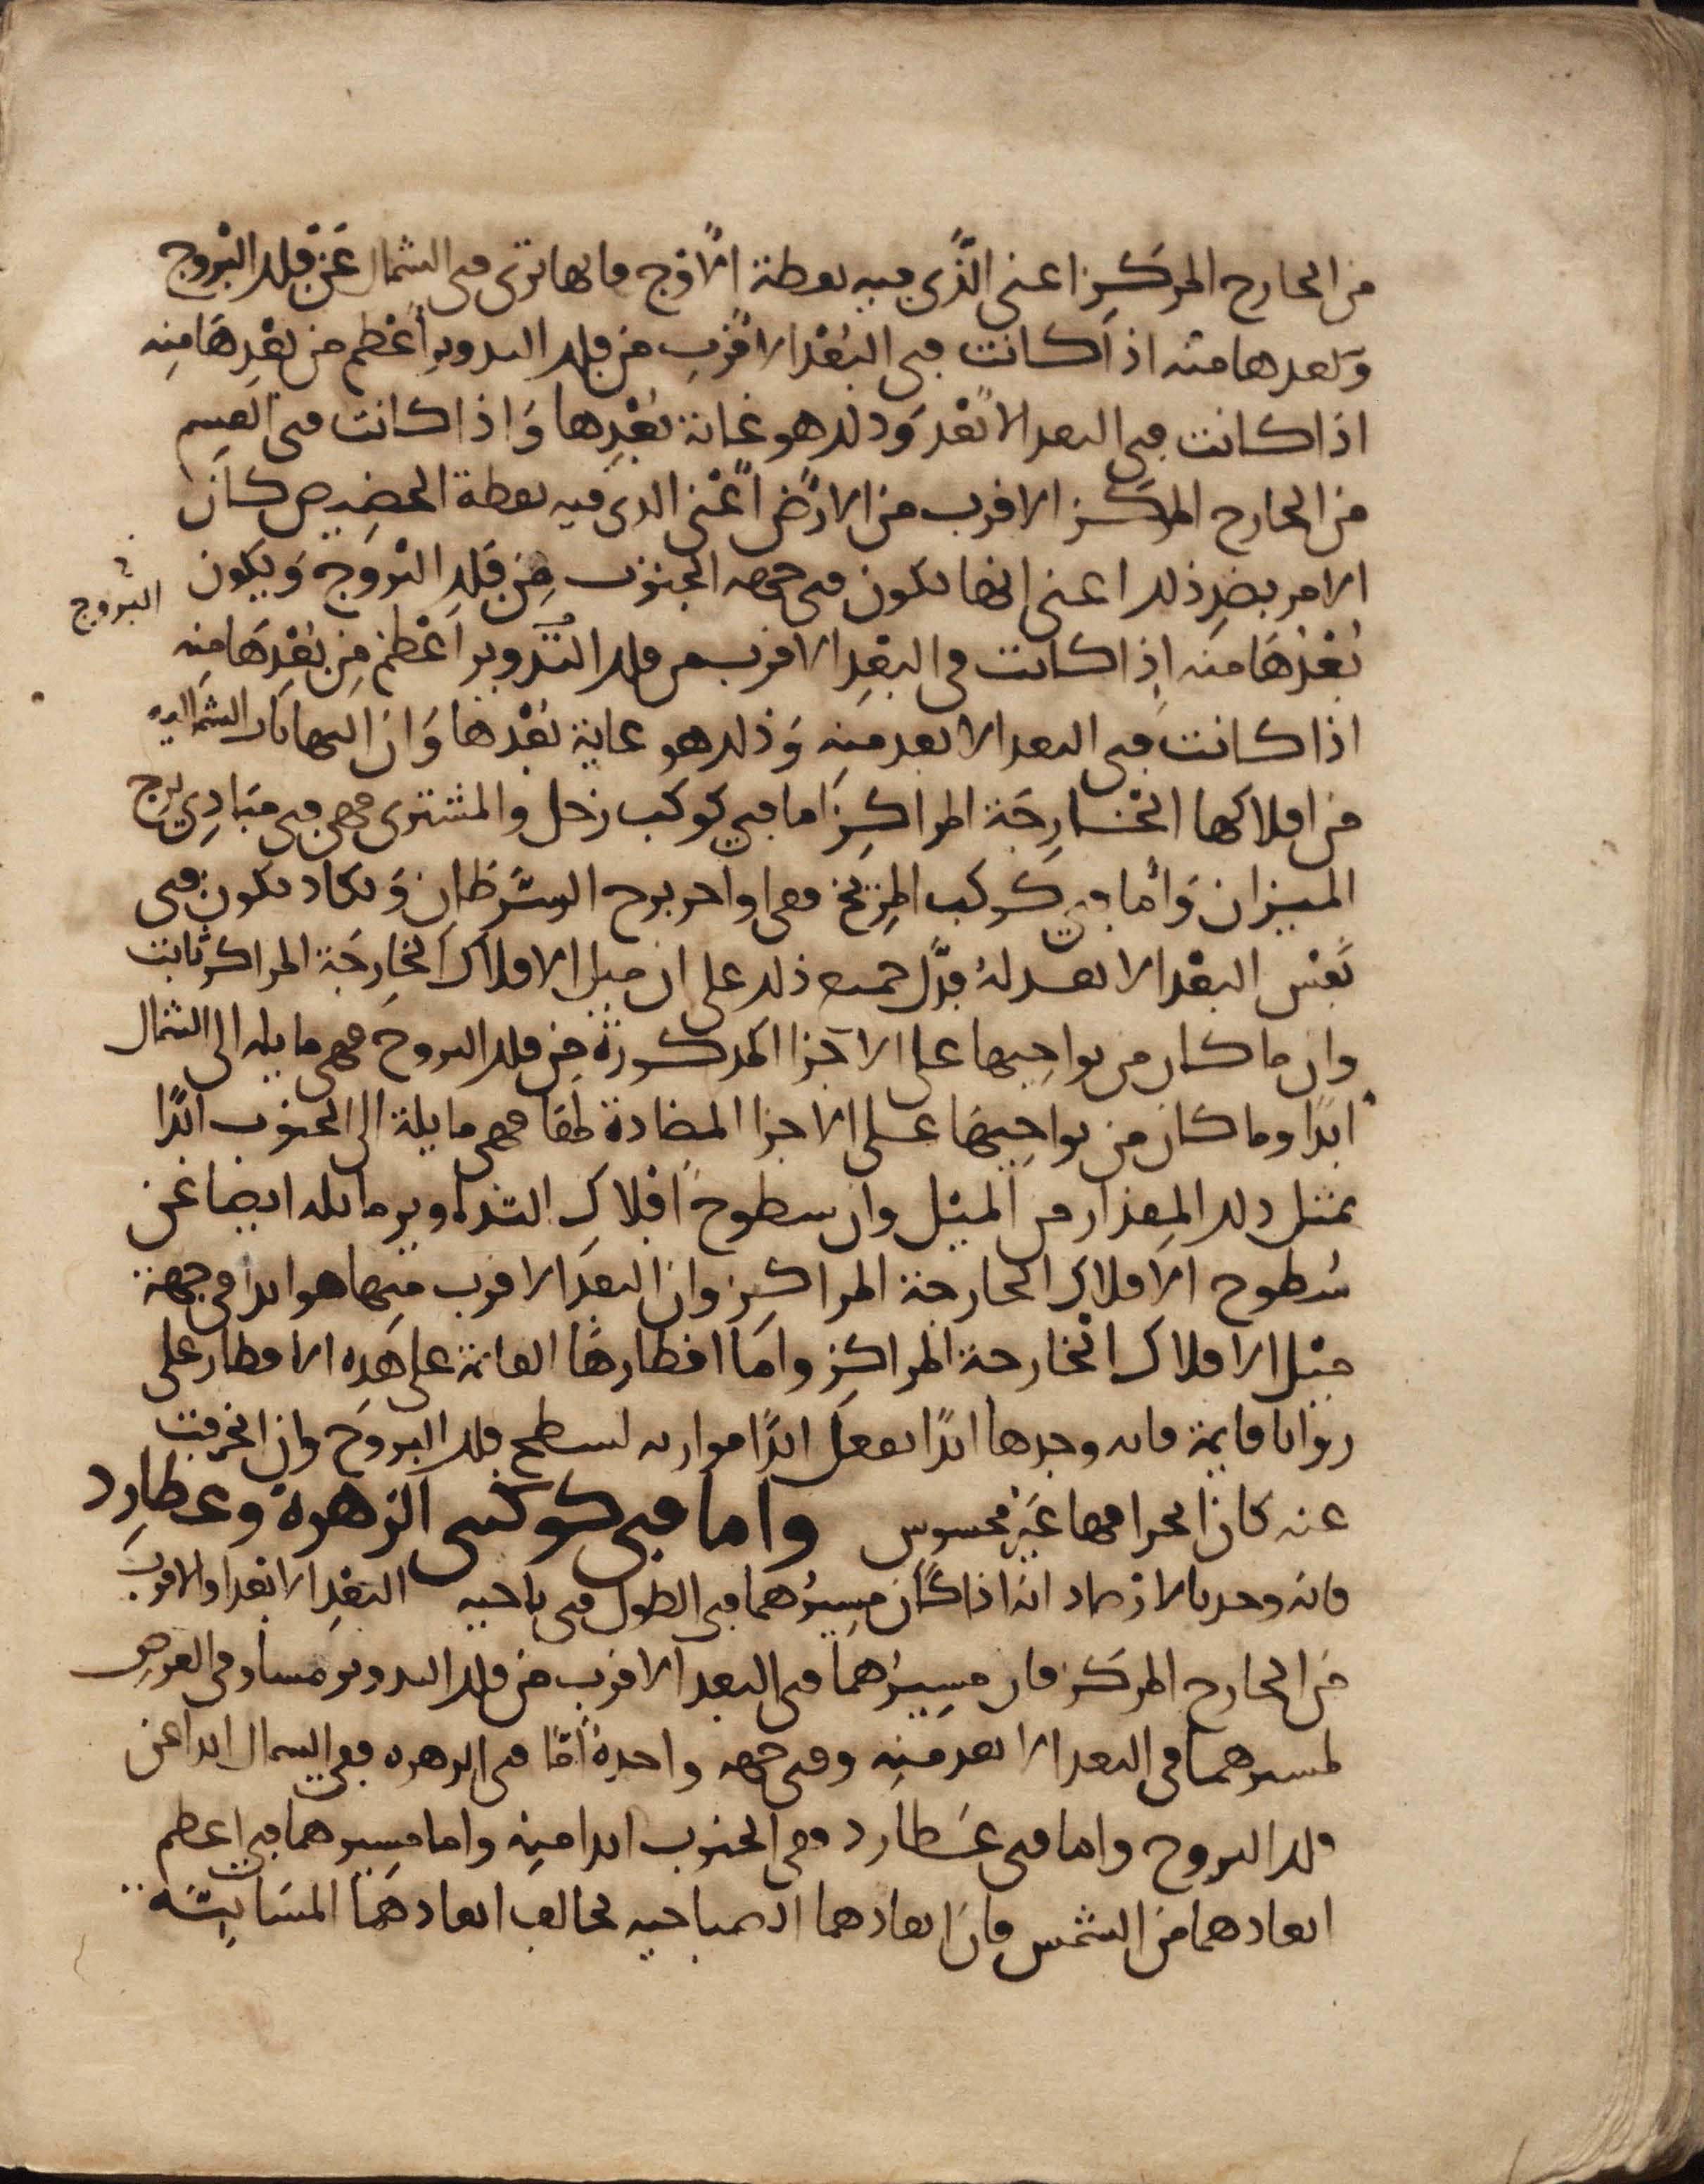 من الخارج المركز اعني الذي فيه نقطة الاوج فانها ترى في الشمال عن فلك البروج
وبعدها منه اذا كانت في البعد الاقرب من فلك التدوير أعظم من بعدها منه
اذا كانت في البعد الابعد وذلك هو غاية بعدها واذا كانت في القسم
من الخارج المركز الاقرب من الارض اعني الذي فيه نقطة الحضيض كان
الامر بضد ذلك اعني انها تكون في جهة الجنوب من فلك البروج ويكون
البروج
بعدها منه اذا كانت في البعد الاقرب من فلك التدوير اعظم من بعدها منه
اذا كانت في البعد الابعد منه وذلك هو غاية بعدها وان النهايات الشمالية
من افلاكها الخارجة المراكز اما في كوكب زحل والمشتري فهي في مبادي برج
الميزان وأما في كوكب المريخ ففي اواخر برج السرطان وتكاد تكون في
نفس البعد الابعد له فدل جميع ذلك على ان ميل الافلاك الخارجة المراكز ثابت
وان ما كان من نواحيها على الاجزا المذكورة من فلك البروج فهي مايله الى الشمال
ابدا وما كان من نواحيها على الاجزا المضادة لها فهي مايلة الى الجنوب ابدا
بمثل ذلك المقدار من الميل وان سطوح افلاك التداوير مايله ايضا عن
سطوح الافلاك الخارجة المراكز وان البعد الاقرب منها هو ابدا في جهة
ميل الافلاك الخارجة المراكز واما اقطارها القائمة على هذه الاقطار على
زوايا قايمة فانه وجدها ابدا بفعل ابدا موازيه لسطح فلك البروج وان انحرفت
عنه كان انحرافها غير محسوس واما في كوكبي الزهرة وعطارد
فانه وجد بالارصاد انه اذا كان مسيرهما في الطول في ناحيه البعد الابعد او الاقرب
من الخارج المركز فان مسيرهما في البعد الاقرب من فلك التدوير مساو في العرض
لمسيرهما في البعد الابعد منه وفي جهه واحدة أما في الزهره ففي الشمال ابدا عن
فلك البروج واما في عطارد ففي الجنوب ابدا منه واما مسيرهما في اعظم
ابعادهما من الشمس فان ابعادهما الصباحيه تخالف ابعادهما المسائية